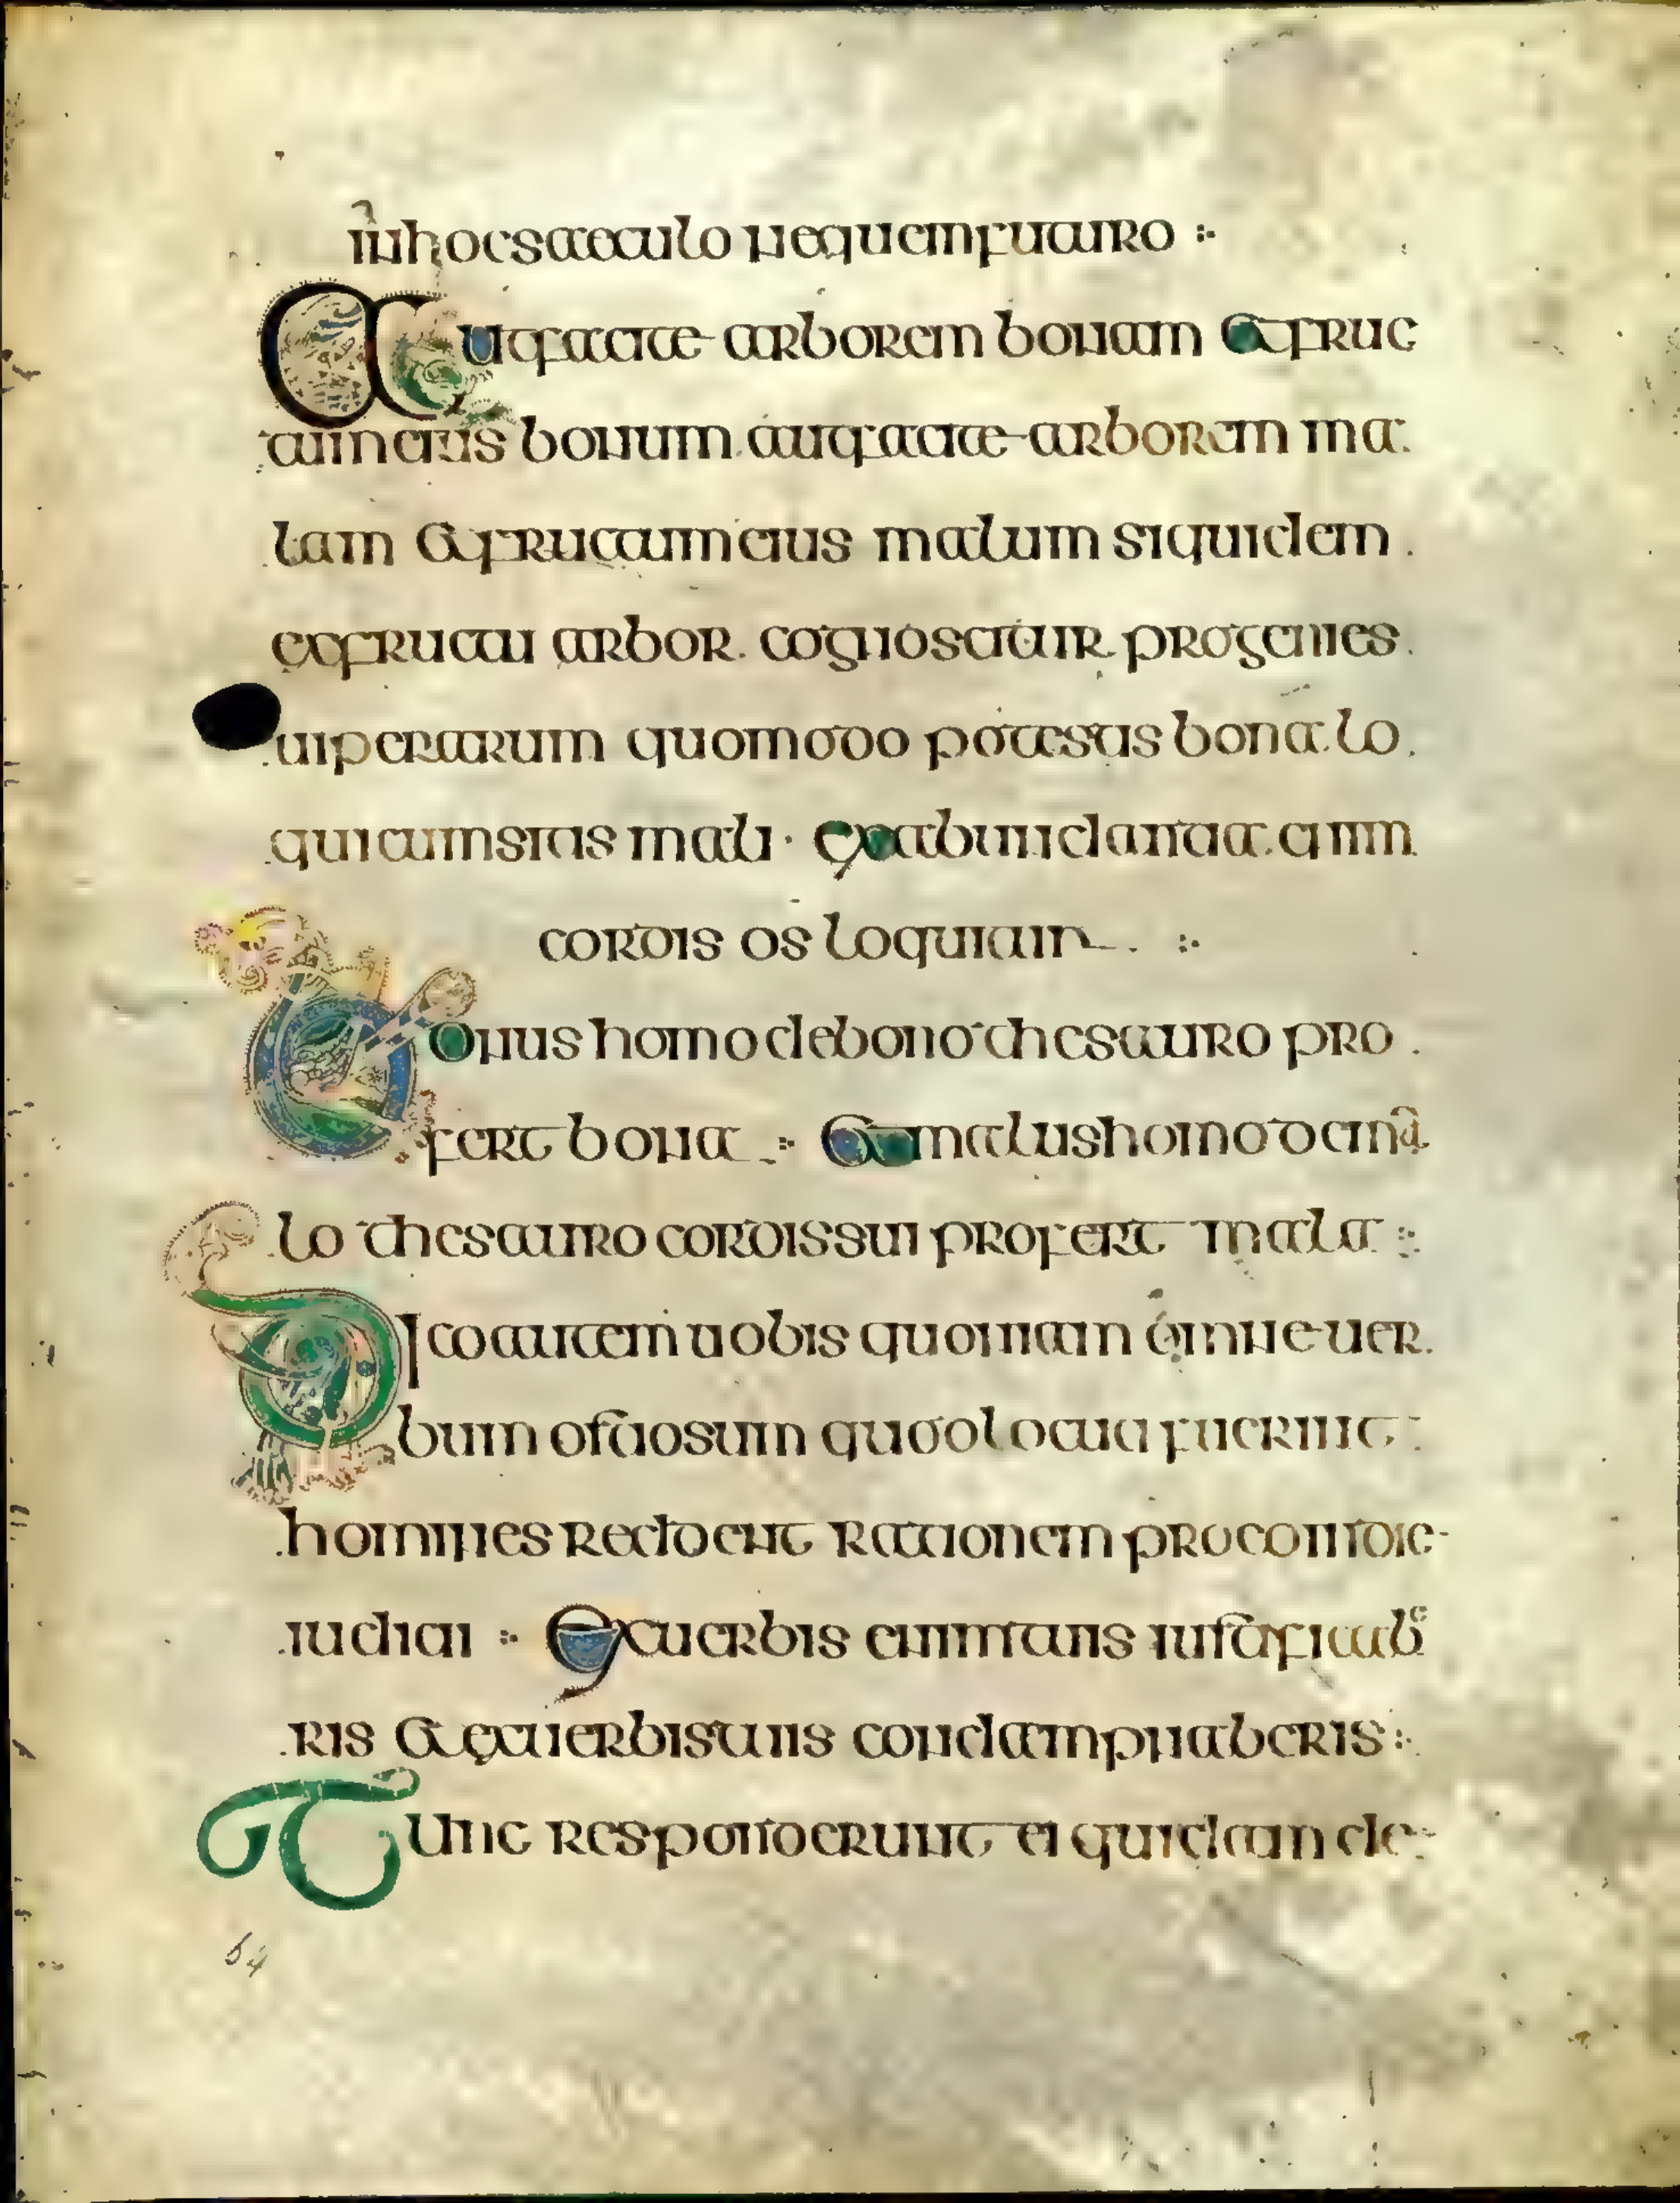 in hoc saeculo neque in futuro
Aut facite arborem bonam et fruc
tum eius bonum aut facite arborem ma
lam et fructum eius malum siquidem
ex fructu arbor cognoscitur progenies
uiperarum quomodo potestis bona lo
qui cum sitis mali · ex abundantia enim
cordis os loquitur
Bonus homo de bono thesauro pro
fert bona Et malus homo de ma
lo thesauro cordis sui profert mala
Dico autem uobis quoniam omne uer
bum otiosum quod locuti fuerint
homines reddent rationem pro eo in die
iudicii Ex uerbis enim tuis iustificabe
ris et ex uerbis tuis condampnaberis
Tunc responderunt ei quidam de
64